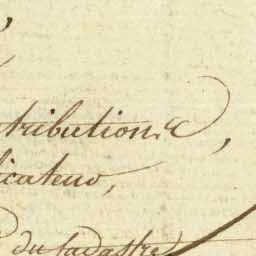 tributions,
licateur,
du Cadastre